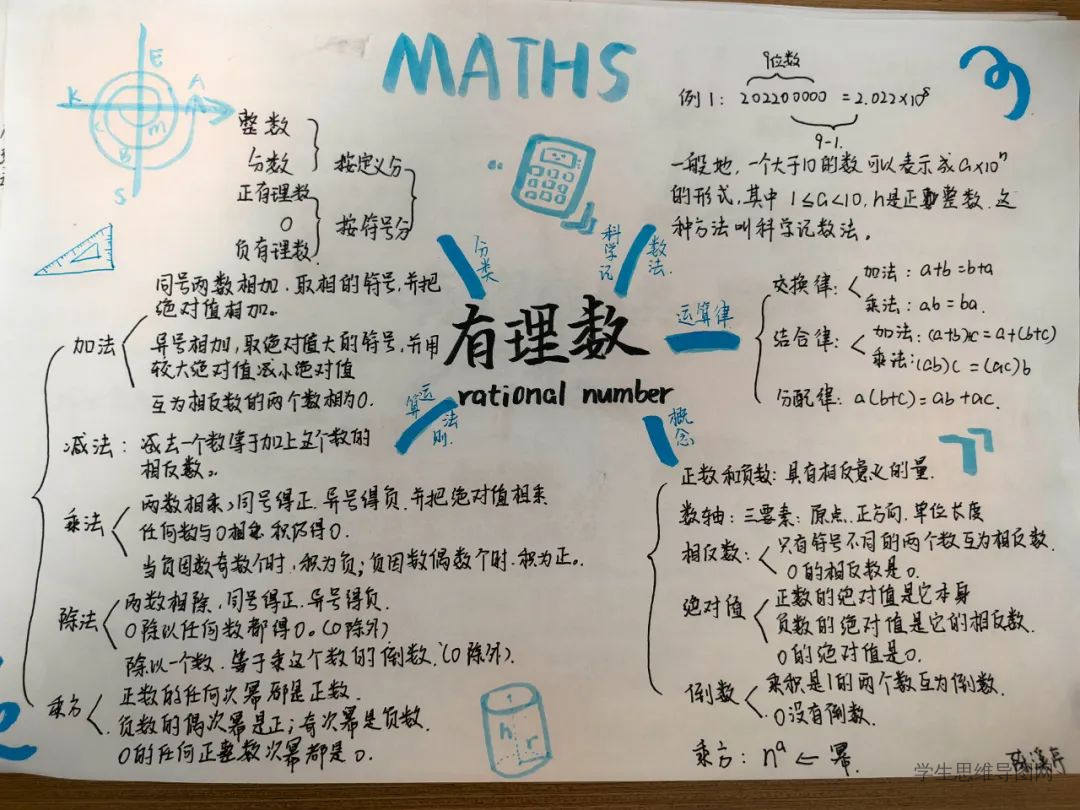 MATHS
E
K
A
m
B
S
整数
分数
按定义分
正有理数
0
负有理数
按符号分
分类
科学记
数法
9位数
例1: 202200000 = 2.022×10⁸
9-1
一般地，一个大于10的数可以表示成a×10ⁿ
的形式，其中 1≤a<10, n是正整数.这
种方法叫科学记数法。
有理数
rational number
运算律
交换律: 加法: a+b=b+a
乘法: ab=ba.
结合律: 加法: (a+b)+c=a+(b+c)
乘法:(ab)c=(ac)b
分配律: a(b+c)=ab+ac.
运算
法则.
加法
同号两数相加.取相的符号,并把
绝对值相加。
异号相加,取绝对值大的符号,并用
较大绝对值减小绝对值
互为相反数的两个数相为0.
减法: 减去一个数等于加上这个数的
相反数。
乘法
两数相乘,同号得正.异号得负.并把绝对值相乘
任何数与0相乘积仍得0.
当负因数奇数个时,积为负;负因数偶数个时.积为正。
除法
两数相除,同号得正.异号得负.
0除以任何数都得0。(0除外)
除以一个数.等于乘这个数的倒数.(0除外).
乘方
正数的任何次幂都是正数.
负数的偶次幂是正;奇次幂是负数.
0的任何正整数次幂都是0.
概念
正数和负数: 具有相反意义的量.
数轴: 三要素: 原点.正方向.单位长度
相反数: 只有符号不同的两个数互为相反数.
0的相反数是0.
绝对值
正数的绝对值是它本身
负数的绝对值是它的相反数.
0的绝对值是0.
倒数
乘积是1的两个数互为倒数.
0没有倒数.
乘方: nᵃ ← 幂
h r
学生思维导图网